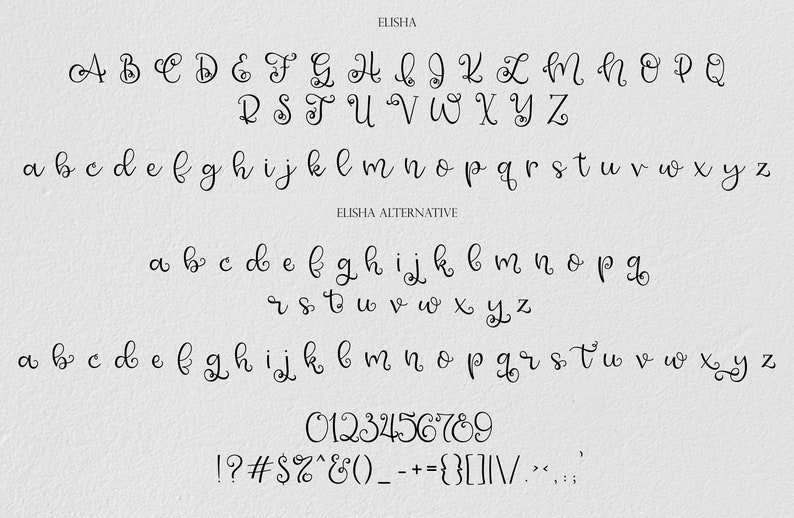 ELISHA
A B C D E F G H I J K L M N O P Q
R S T U V W X Y Z
a b c d e f g h i j k l m n o p q r s t u v w x y z
ELISHA ALTERNATIVE
a b c d e f g h i j k l m n o p q
r s t u v w x y z
a b c d e f g h i j k l m n o p q r s t u v w x y z
0123456789
!?#$%^&()_-+={}[]|\/.><,:;'